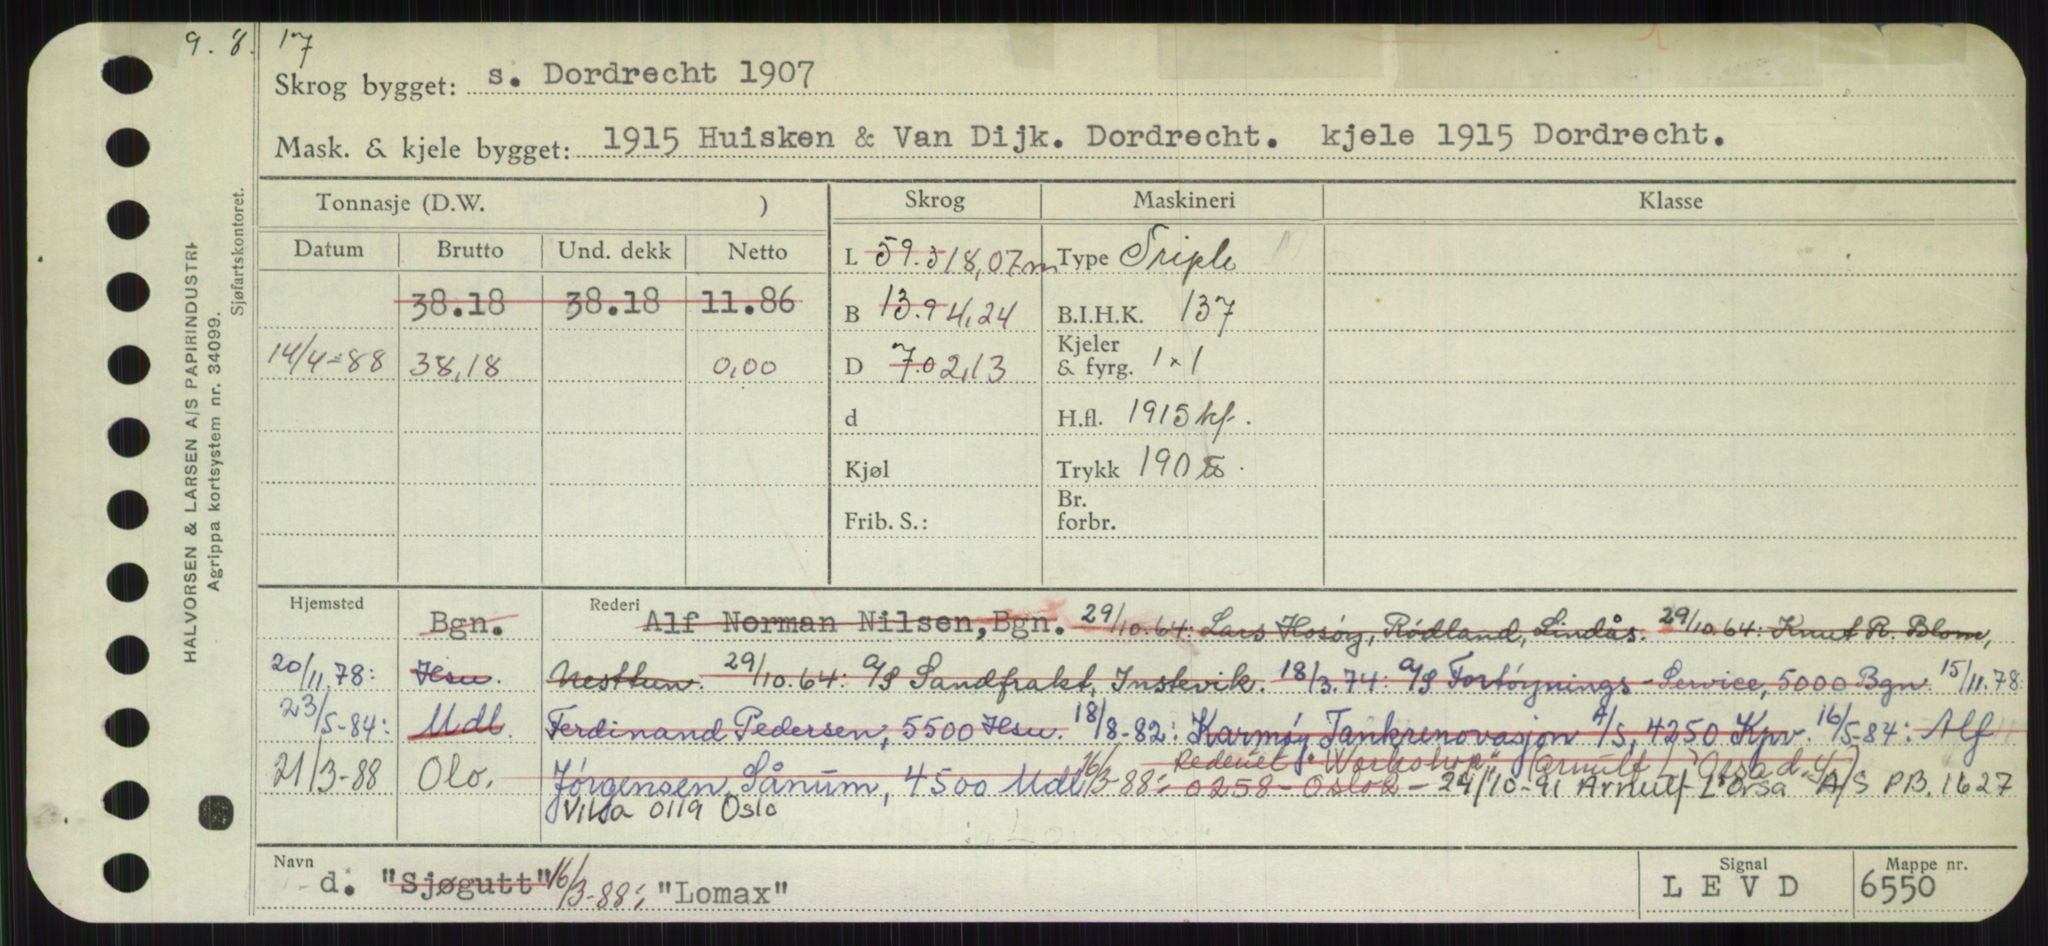 9. 8. 17
Skrog bygget: s. Dordrecht 1907
Mask. & kjele bygget: 1915 Huisken & Van Dijk. Dordrecht. kjele 1915 Dordrecht.
HALVORSEN & LARSEN A/S PAPIRINDUSTRI
Agrippa kortsystem nr. 34099.
Sjøfartskontoret.
Tonnasje (D.W. ) Skrog Maskineri Klasse
Datum Brutto Und. dekk Netto
L 59.3 18,07m Type Triple
38.18 38.18 11.86
B 13.9 4,24 B.I.H.K. 137
14/4-88 38,18 0,00
D 7.0 2,13 Kjeler & fyrg. 1 x 1
d H.fl. 1915 kf.
Kjøl Trykk 190
Frib. S.: Br. forbr.
Hjemsted Rederi
Bgn. Alf Norman Nilsen, Bgn. 29/10.64: Lars Hosøy, Rødland, Lindås. 29/10.64: Knut R. Blom,
20/11,78: Hsu. Nesttun. 29/10.64: A/S Sandfrakt, Instevik. 18/3.74: A/S Fortøynings-Service, 5000 Bgn. 15/11.78:
23/5-84: Mdl. Ferdinand Pedersen, 5500 Hsu. 18/8-82: Karmøy Tankrenovasjon A/S, 4250 Kpv. 16/5-84: Alf
21/3-88 Olo. Jørgensen, Sånum, 4500 Mdl 16/3-88: Rederiet "Workshop" (Arnulf
0258 - Oslo 2 - 24/10-91 Arnulf L'orsa A/S PB. 1627
Vika 0119 Oslo
Navn d. "Sjøgutt" 16/3-88: "Lomax"
Signal L E V D
Mappe nr. 6550